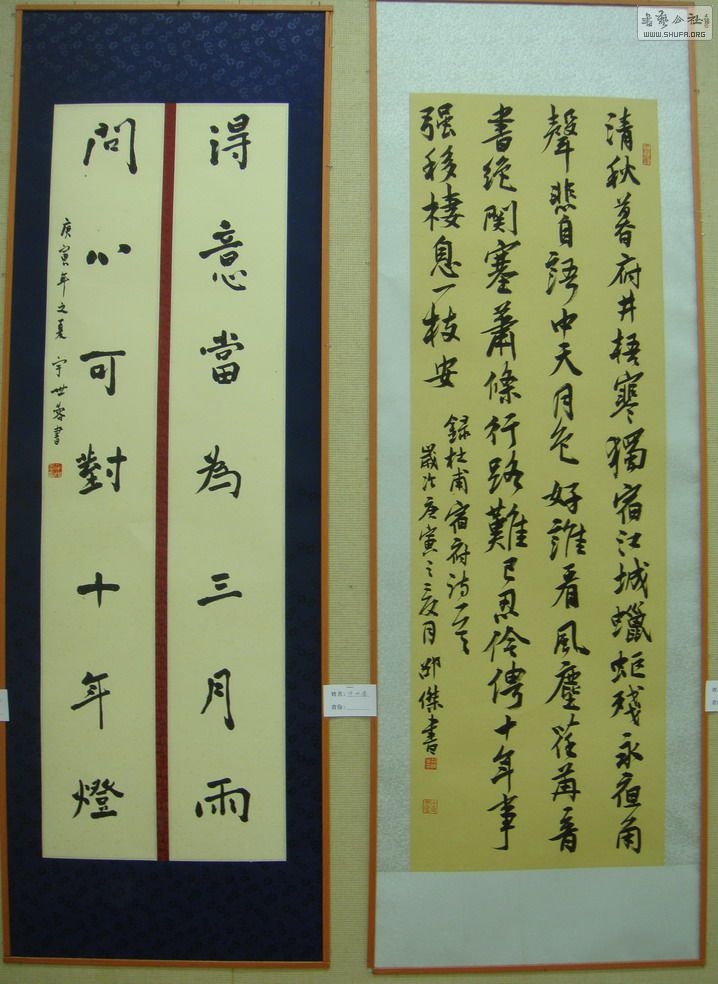 清秋幕府井梧寒獨宿江城蠟炬殘永夜角
聲悲自語中天月色好誰看風塵荏苒音
書絕関塞蕭條行路難已忍伶俜十年事
强移棲息一枝安
録杜甫宿府詩一首
歲次庚寅之夏月邵傑書
得意當為三月雨
問心可對十年燈
庚寅年之夏 宇世蓉書
姓名:
書藝公社
WWW.SHUFA.ORG